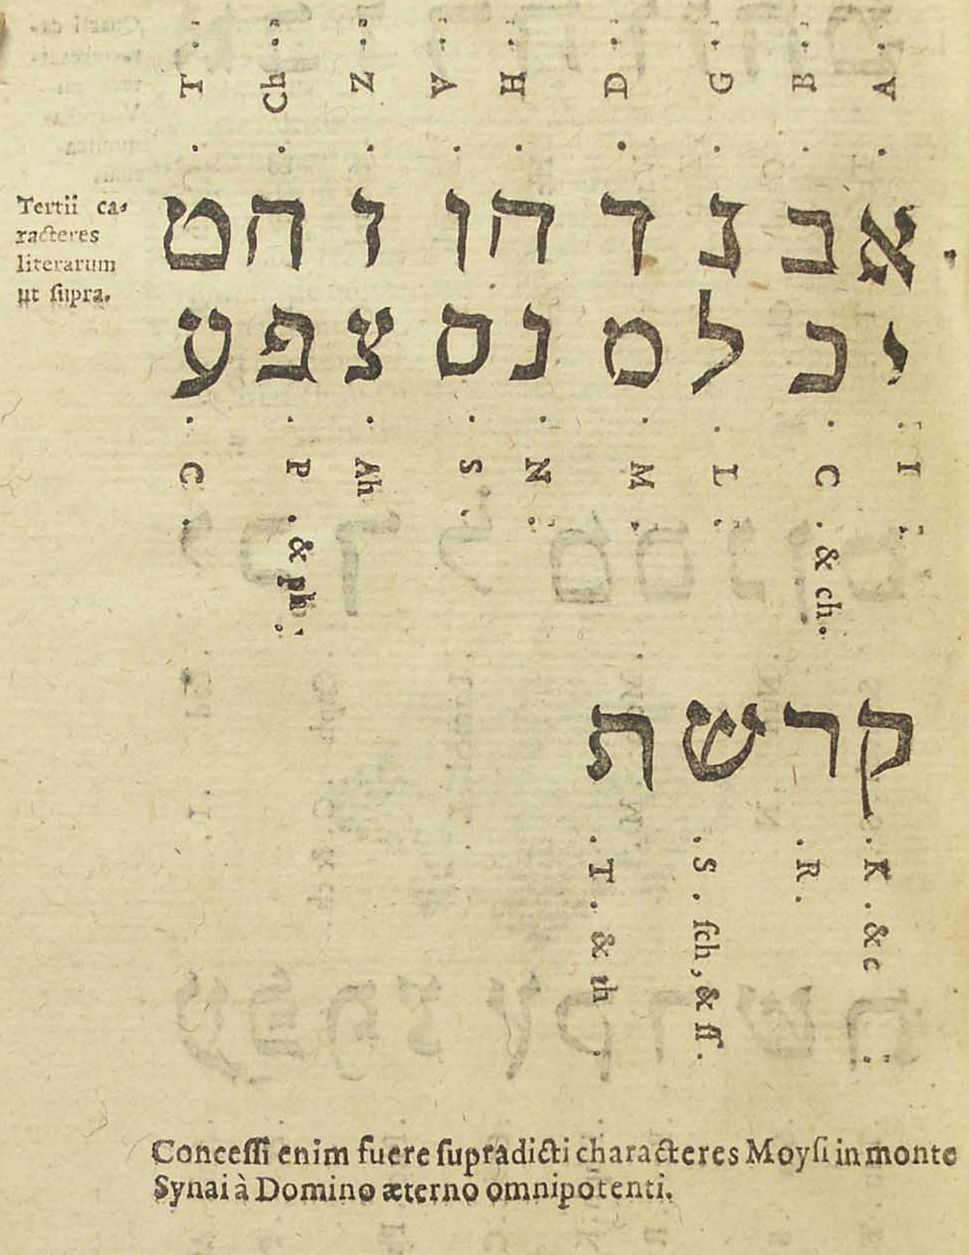 A . B . G . D . H . V . Z . Ch . T .
Tertii ca-
racteres
literarum
ut ſupra.
א ב ג ד ה ו ז ח ט
י כ ל מ נ ס צ פ ע
. I . C . & ch. . L . M . N . S . Ah . P . & ph . C
ק ר ש ת
. K . & c . R . . S . ſch, & ſſ. . T . & th
Conceſſi enim fuere ſupradicti characteres Moyſi in monte
Synai à Domino æterno omnipotenti.